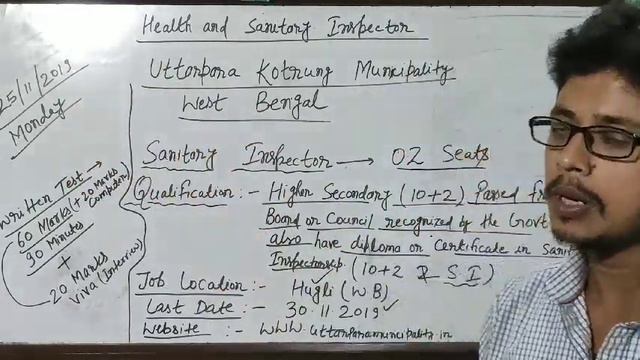 Health and Sanitory Inspector
Uttorpara Kotrung Muncipality
West Bengal
25/11/2019
Monday
Sanitory Inspector → 02 Seats
Qualification :- Higher Secondary (10+2) Passed
Board or Council recognized by the Govt
also have diploma or Certificate in Sani
Inspectorship (10+2 & S I)
Job Location :- Hugli (WB)
Last Date :- 30.11.2019
Website :- WWW.uttarparamuncipality.in
Written Test →
60 Marks (+20 Marks Computer)
90 Minutes
+
20 Marks
Viva (Interview)